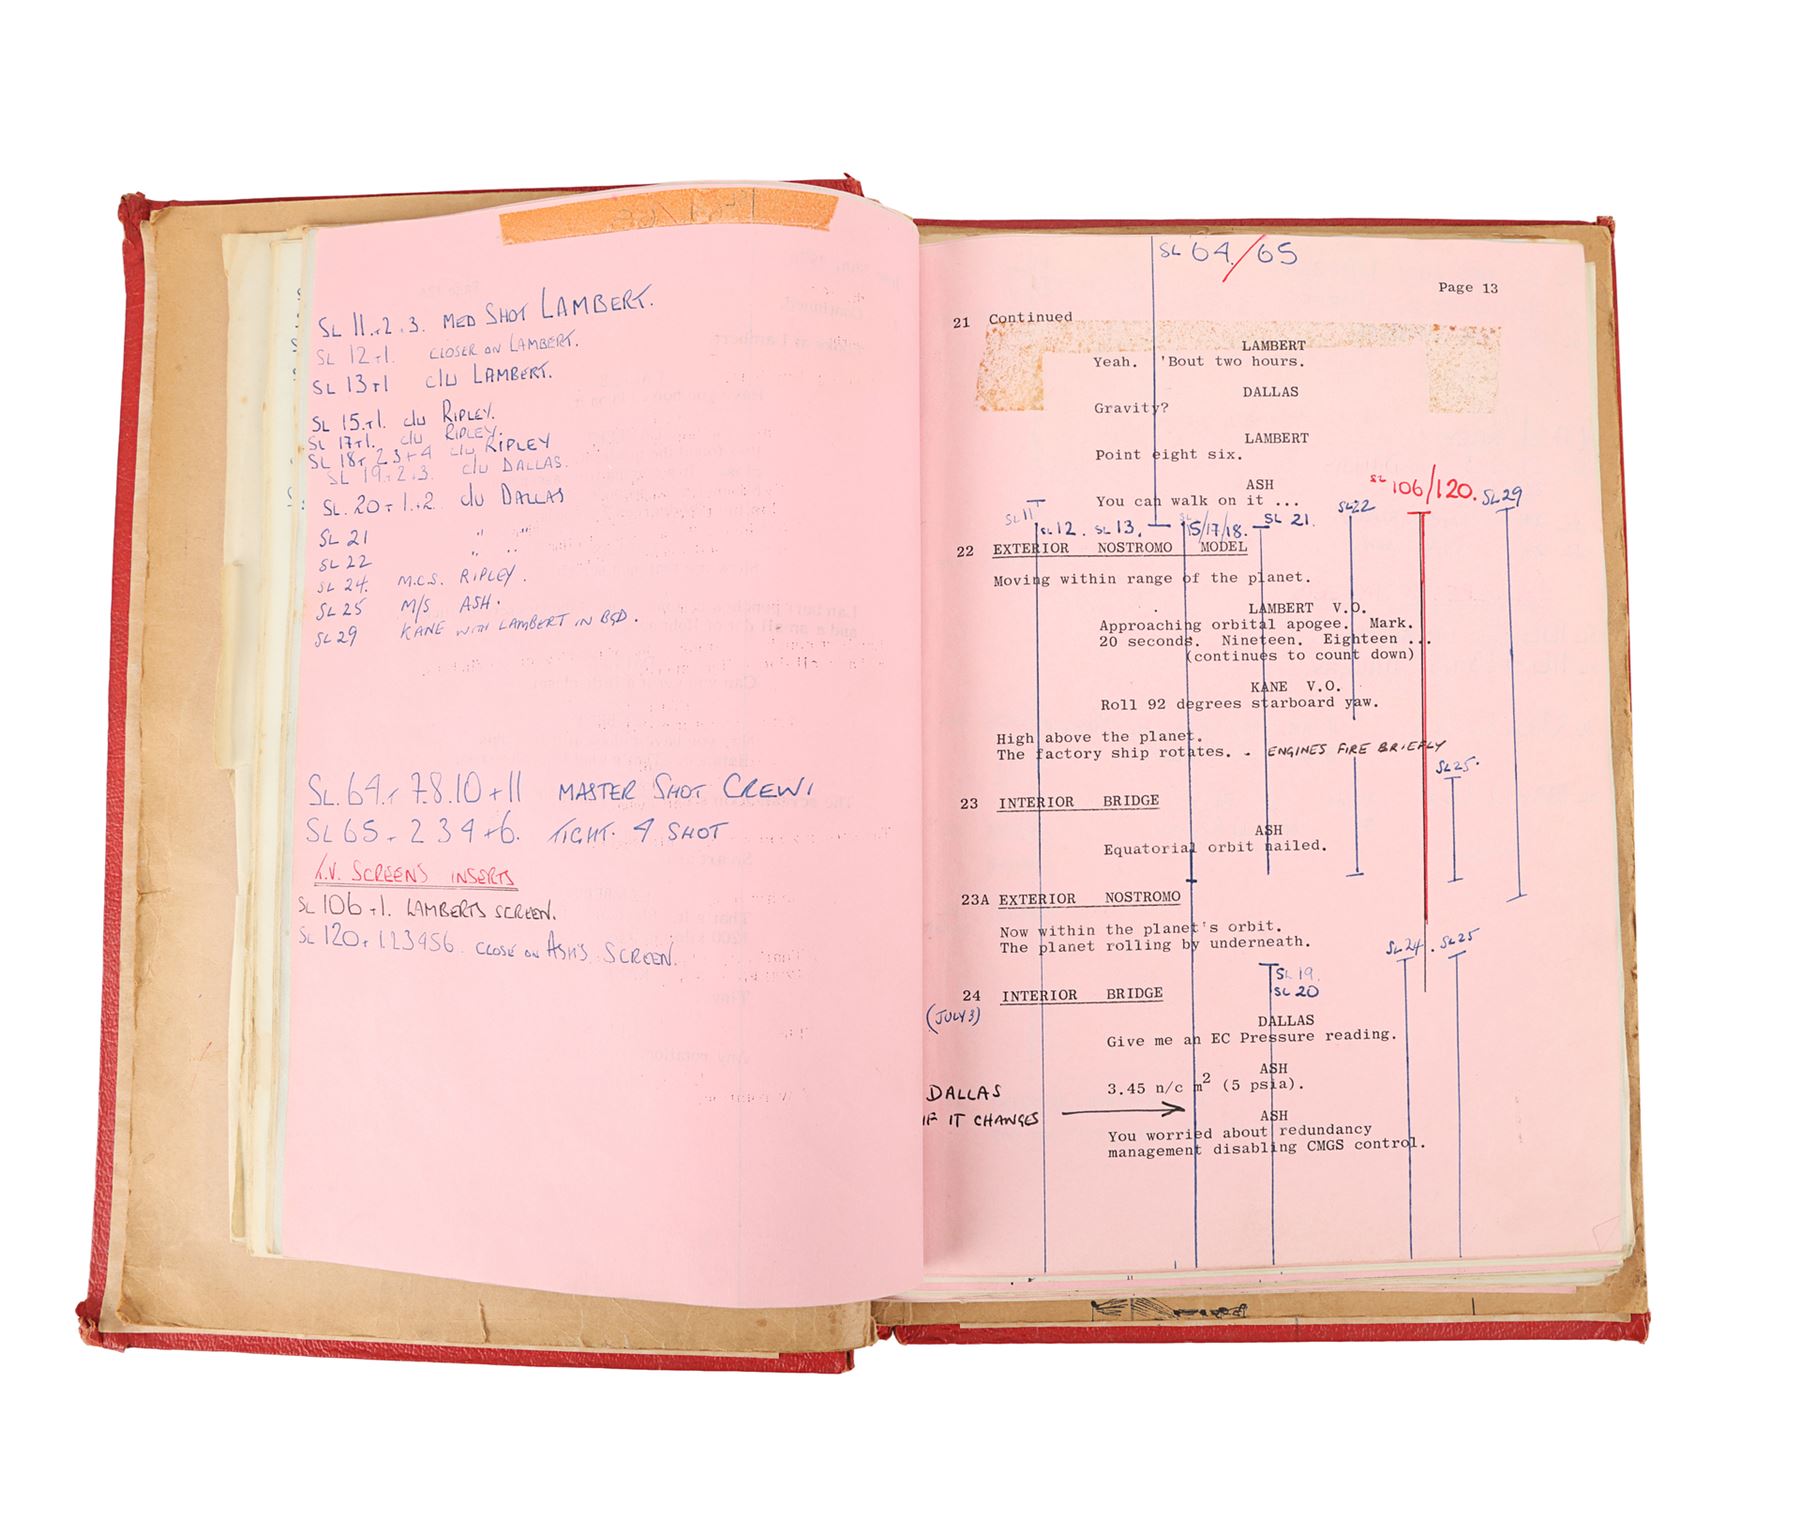 SL 11.+2.3. MED SHOT LAMBERT.
SL 12+1. CLOSER ON LAMBERT.
SL 13+1 C/U LAMBERT.
SL 15.+1. C/U RIPLEY.
SL 17+1. C/U RIPLEY.
SL 18+ 2 3+4 C/U RIPLEY
SL 19+2.3. C/U DALLAS.
SL. 20+1.+2 C/U DALLAS
SL 21 " "
SL 22 " "
SL 24. M.C.S. RIPLEY.
SL 25 M/S ASH.
SL 29 KANE WITH LAMBERT IN BGD.
SL.64.+ 7.8.10+11 MASTER SHOT CREW
SL 65+ 2 3 4+6. TIGHT. 4 SHOT
T.V. SCREENS INSERTS
SL 106+1. LAMBERTS SCREEN.
SL 120+ 1.2.3456. CLOSE ON ASH'S SCREEN.
SL 64/65
Page 13
21 Continued
LAMBERT
Yeah. 'Bout two hours.
DALLAS
Gravity?
LAMBERT
Point eight six.
ASH
You can walk on it ...
SL 106/120. SL 29
SL 11 SL 12. SL 13. SL 15/17/18. SL 21. SL 22
22 EXTERIOR NOSTROMO MODEL
Moving within range of the planet.
LAMBERT V.O.
Approaching orbital apogee. Mark.
20 seconds. Nineteen. Eighteen ...
(continues to count down)
KANE V.O.
Roll 92 degrees starboard yaw.
High above the planet.
The factory ship rotates. - ENGINES FIRE BRIEFLY
SL 25.
23 INTERIOR BRIDGE
ASH
Equatorial orbit nailed.
23A EXTERIOR NOSTROMO
Now within the planet's orbit.
The planet rolling by underneath.
SL 24. SL 25
SL 19.
SL 20
24 INTERIOR BRIDGE
(JULY 3)
DALLAS
Give me an EC Pressure reading.
ASH
3.45 n/c m2 (5 psia).
DALLAS
IF IT CHANGES
ASH
You worried about redundancy
management disabling CMGS control.